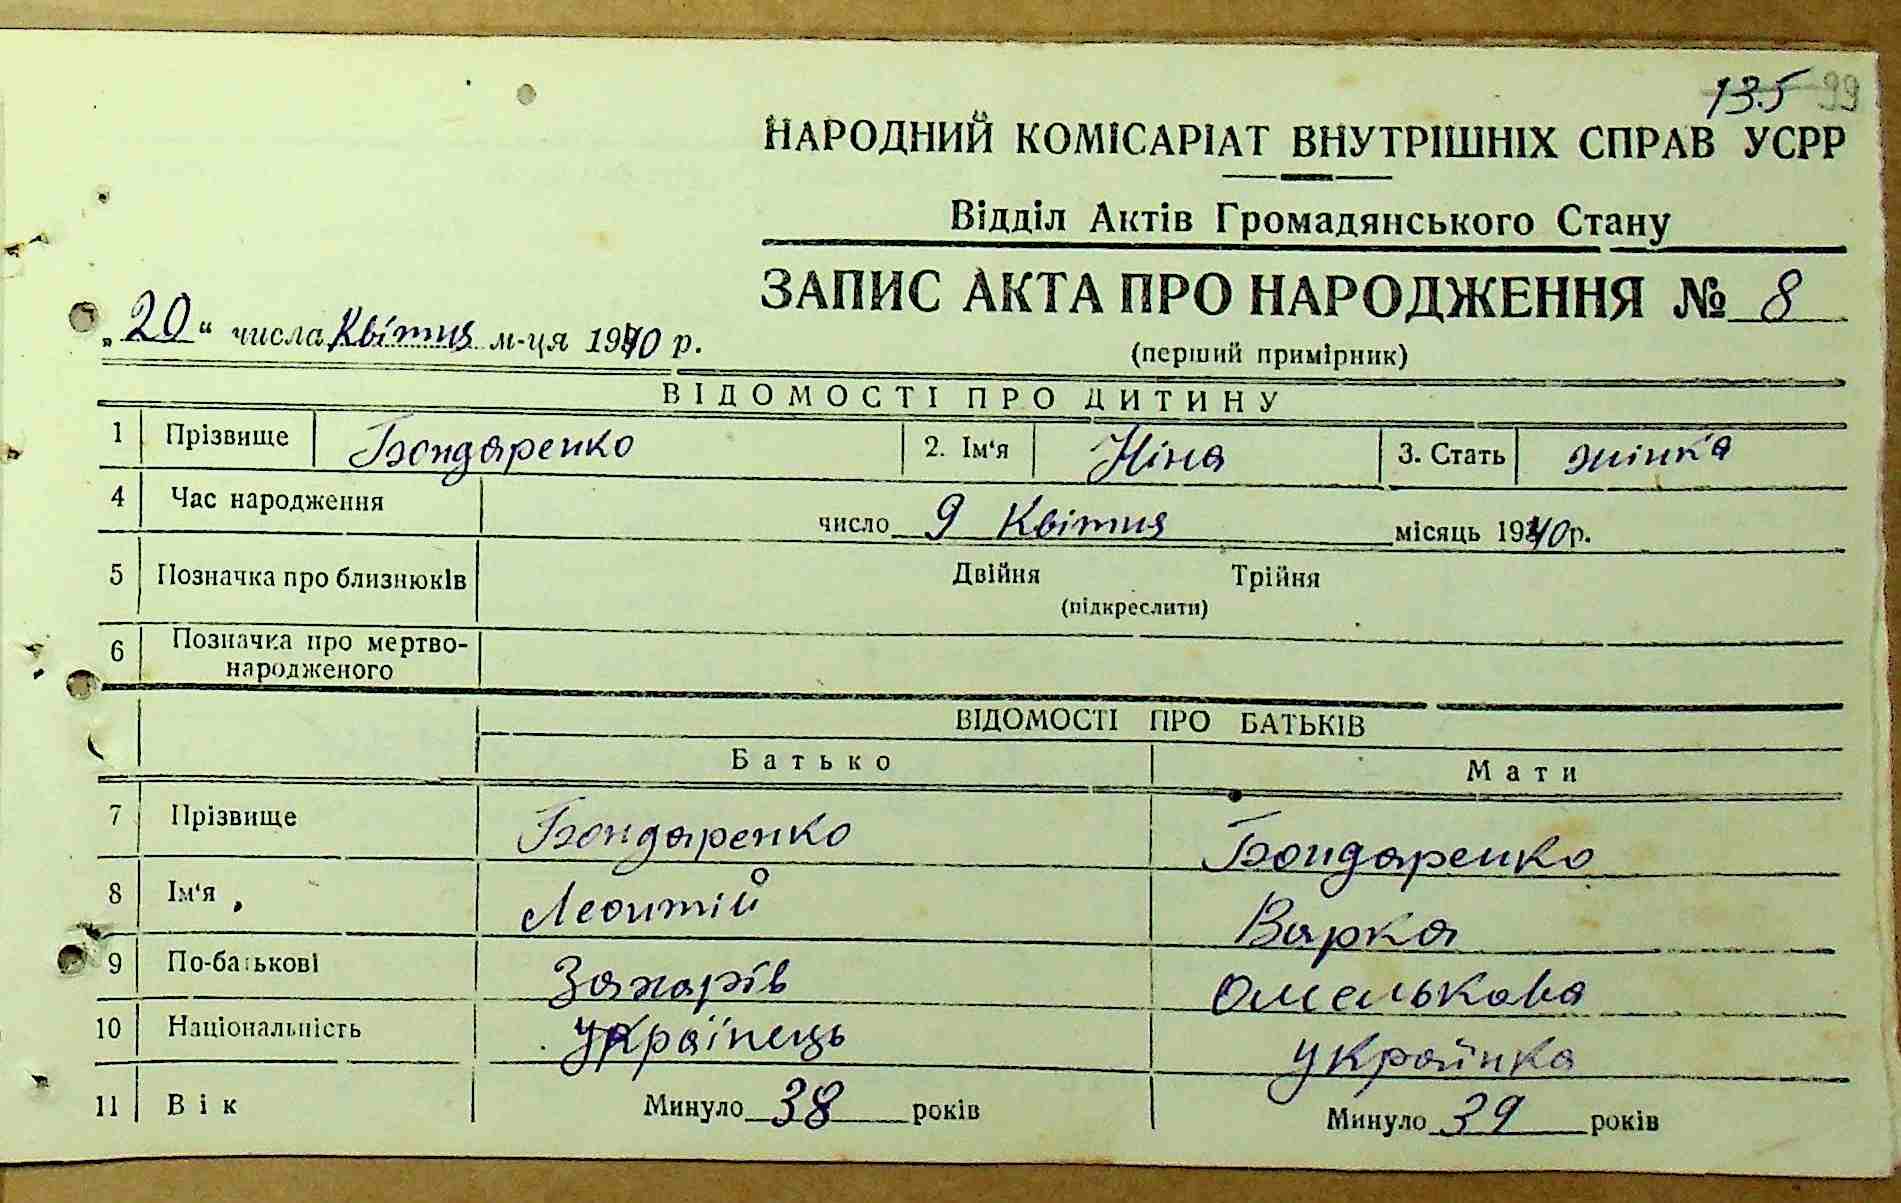 135 99
НАРОДНИЙ КОМІСАРІАТ ВНУТРІШНІХ СПРАВ УСРР
Відділ Актів Громадянського Стану
ЗАПИС АКТА ПРО НАРОДЖЕННЯ № 8
„20“ числа Квітня м-ця 1940 р.
(перший примірник)
ВІДОМОСТІ ПРО ДИТИНУ
1 Прізвище Бондаренко 2. Ім‘я Ніна 3. Стать жінка
4 Час народження число 9 Квітня місяць 1940 р.
5 Позначка про близнюків Двійня Трійня
(підкреслити)
6 Позначка про мертво-
народженого
ВІДОМОСТІ ПРО БАТЬКІВ
Батько Мати
7 Прізвище Бондаренко Бондаренко
8 Ім‘я Леонтій Варка
9 По-батькові Захарів Омелькова
10 Національність Українець Українка
11 Вік Минуло 38 років Минуло 39 років